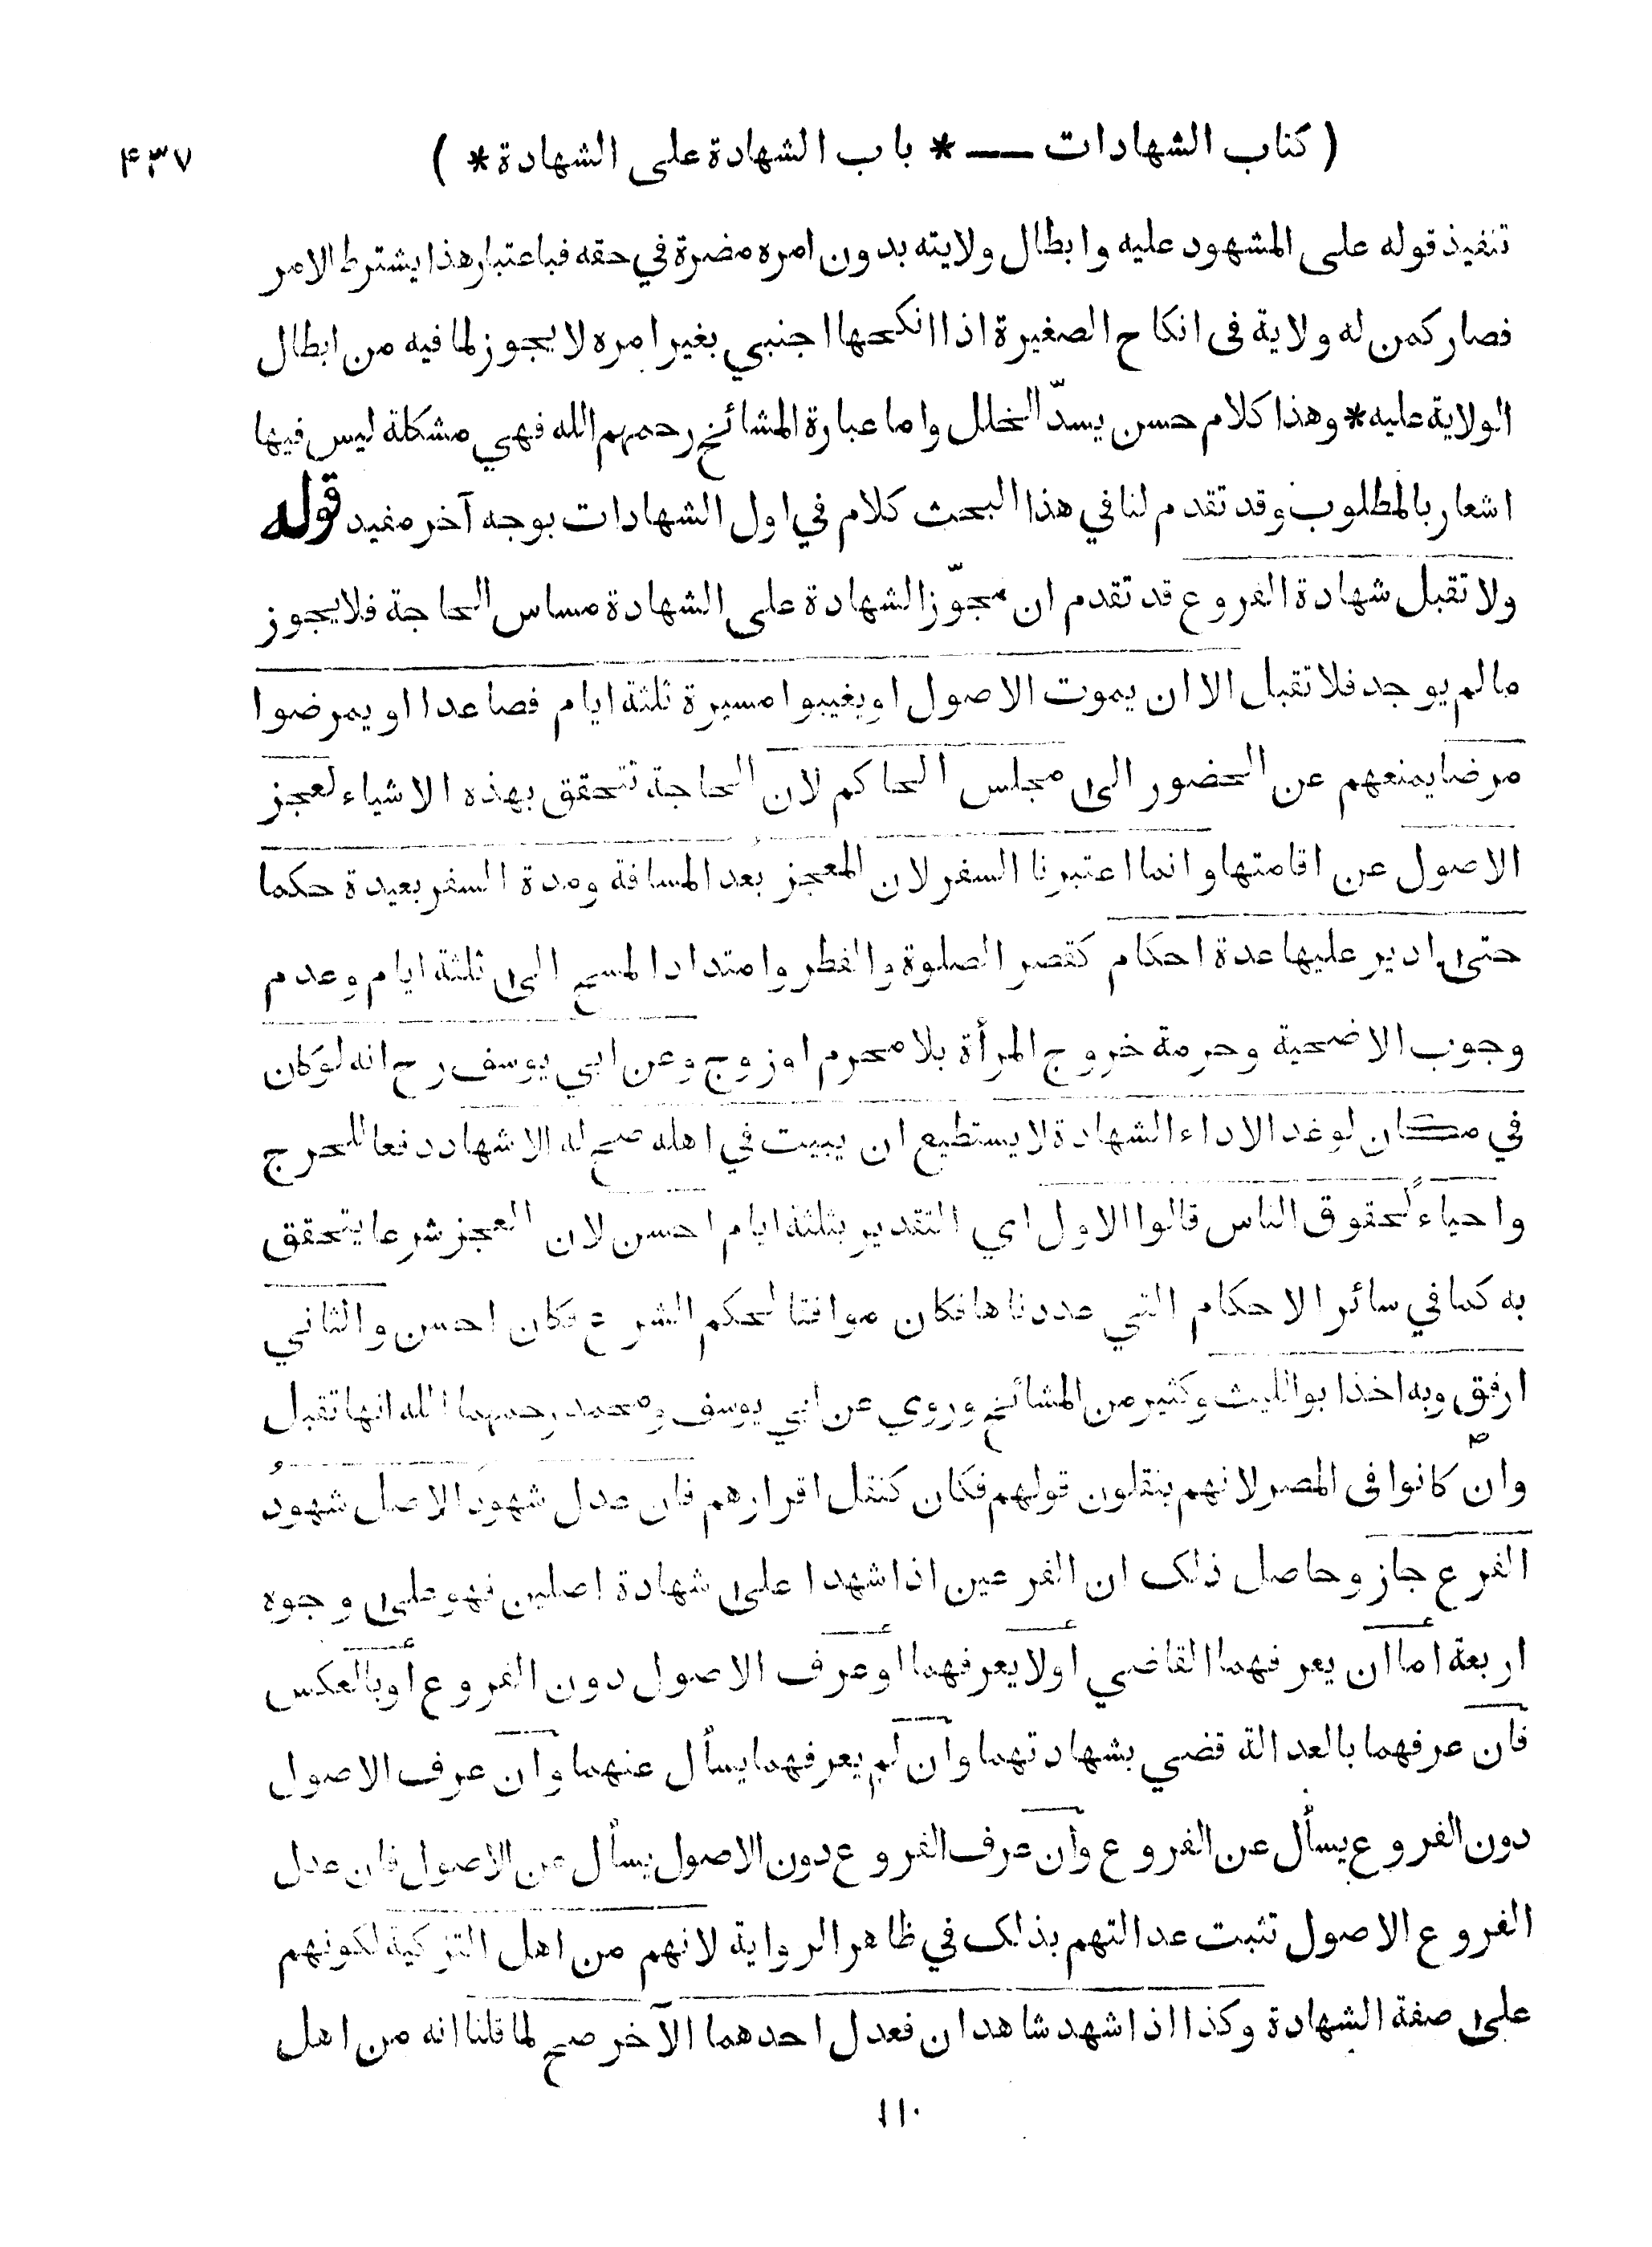 ( كتاب الشهادات — * باب الشهادة على الشهادة * ) ۴۳۷
تنفيذ قوله على المشهود عليه وابطال ولايته بدون امره مضرة في حقه فباعتبار هذا يشترط الامر
فصار كمن له ولاية فى انكاح الصغيرة اذا انكحها اجنبي بغير امره لا يجوز لما فيه من ابطال
الولاية عليه * وهذا كلام حسن يسدّ الخلل واما عبارة المشائخ رحمهم الله فهي مشكلة ليس فيها
اشعار بالمطلوب وقد تقدم لنا في هذا البحث كلام في اول الشهادات بوجه آخر مفيد قوله
ولا تقبل شهادة الفروع قد تقدم ان مجوّز الشهادة على الشهادة مساس الحاجة فلا يجوز
مالم يوجد فلا تقبل الا ان يموت الاصول او يغيبوا مسيرة ثلثة ايام فصاعدا او يمرضوا
مرضا يمنعهم عن الحضور الى مجلس الحاكم لان الحاجة تتحقق بهذه الاشياء لعجز
الاصول عن اقامتها وانما اعتبرنا السفر لان المعجز بُعد المسافة ومدة السفر بعيدة حكما
حتى ادير عليها عدة احكام كقصر الصلوة والفطر وامتداد المسح الى ثلثة ايام وعدم
وجوب الاضحية وحرمة خروج المرأة بلا محرم او زوج وعن ابي يوسف رح انه لو كان
في مكان لو غدا لاداء الشهادة لا يستطيع ان يبيت في اهله صح له الاشهاد دفعا للحرج
واحياءً لحقوق الناس قالوا الاول اي التقدير بثلثة ايام احسن لان العجز شرعا يتحقق
به كما في سائر الاحكام التي عددناها فكان موافقا لحكم الشرع فكان احسن والثاني
ارفق وبه اخذ ابو الليث وكثير من المشائخ وروي عن ابي يوسف ومحمد رحمهما الله انها تقبل
وان كانوا فى المصر لانهم ينقلون قولهم فكان كنقل اقرارهم فان عدل شهودَ الاصل شهودُ
الفرع جاز وحاصل ذلك ان الفرعين اذا شهدا على شهادة اصلين فهو على وجوه
اربعة اما ان يعرفهما القاضي اولا يعرفهما او عرف الاصول دون الفروع او بالعكس
فان عرفهما بالعدالة قضي بشهادتهما وان لم يعرفهما يسأل عنهما وان عرف الاصول
دون الفروع يسأل عن الفروع وان عرف الفروع دون الاصول يسأل عن الاصول فان عدل
الفروع الاصول تثبت عدالتهم بذلك في ظاهر الرواية لانهم من اهل التزكية لكونهم
على صفة الشهادة وكذا اذا شهد شاهدان فعدل احدهما الآخر صح لما قلنا انه من اهل
۱۱۰